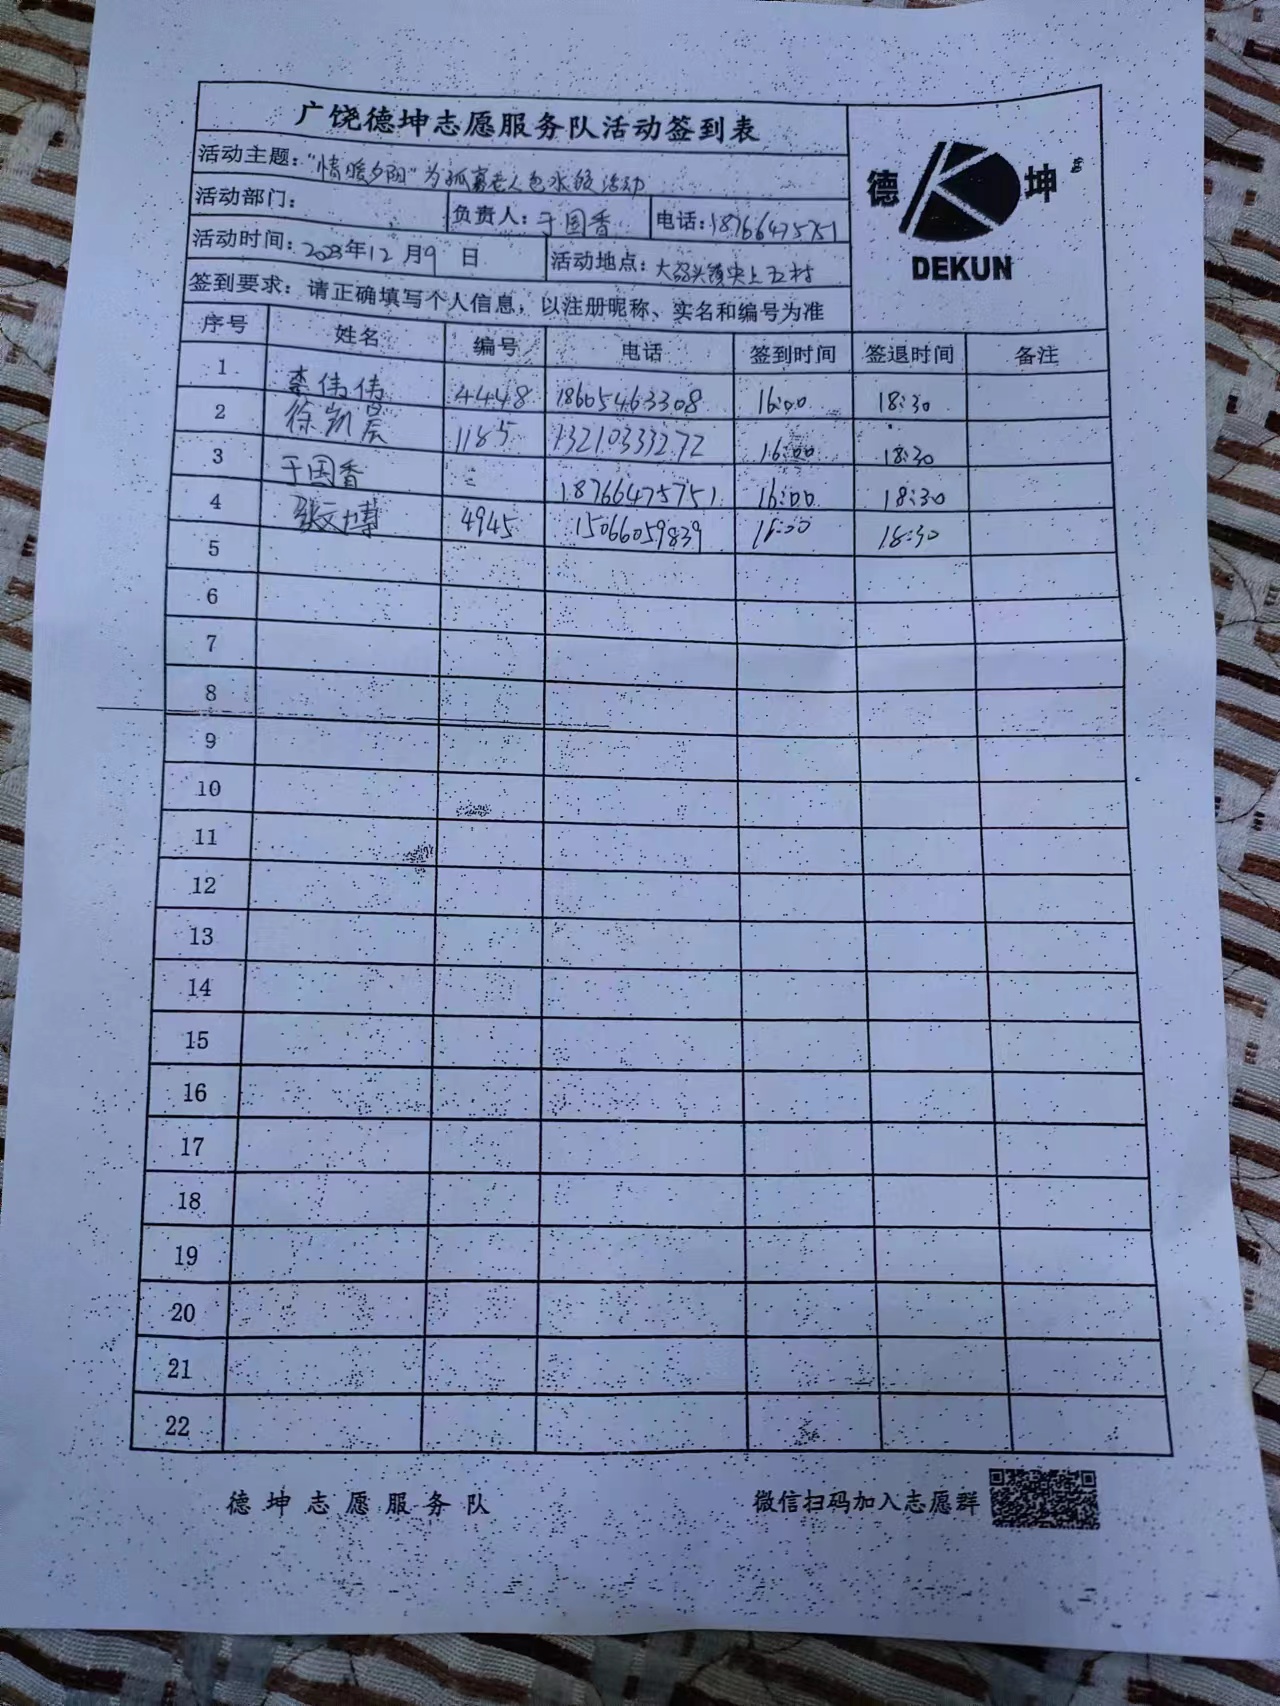 广饶德坤志愿服务队活动签到表
德 坤
DEKUN
活动主题："情暖夕阳"为孤寡老人包水饺活动
活动部门： 负责人：于国香 电话：18766475751
活动时间：2023年12月9日 活动地点：大码头镇央上五村
签到要求：请正确填写个人信息，以注册昵称、实名和编号为准
序号 姓名 编号 电话 签到时间 签退时间 备注
1 李伟伟 4448 18605463308 16:00 18:30
2 徐凯晨 1185 13210333272 16:00 18:30
3 于国香 18766475751 16:00 18:30
4 张文博 4945 15066059839 16:00 18:30
5
6
7
8
9
10
11
12
13
14
15
16
17
18
19
20
21
22
德坤志愿服务队 微信扫码加入志愿群